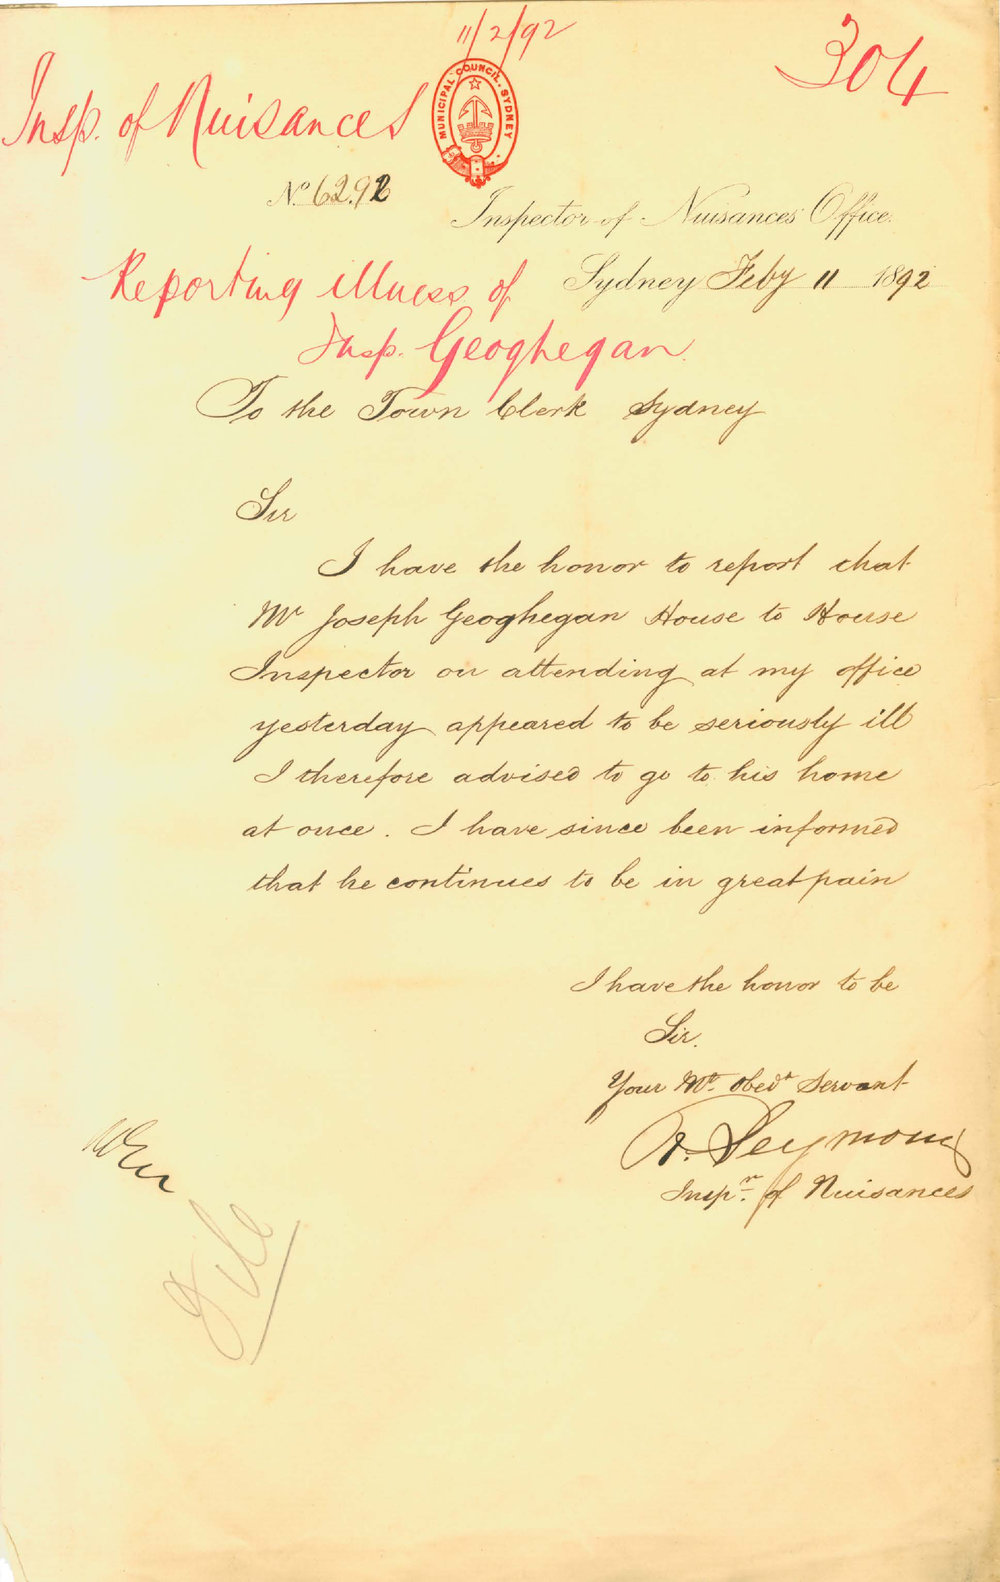 11/2/92
304
Insp. of Nuisances
MUNICIPAL COUNCIL. SYDNEY
No. 62.92
Inspector of Nuisances Office.
Reporting illness of
Sydney Feby 11 1892
Insp. Geoghegan
To the Town Clerk Sydney
Sir
I have the honor to report that
Mr Joseph Geoghegan House to House
Inspector on attending at my office
yesterday appeared to be seriously ill
I therefore advised to go to his home
at once. I have since been informed
that he continues to be in great pain
I have the honor to be
Sir.
Your Mt. obedt Servant
R. Seymour
Inspr. of Nuisances
File